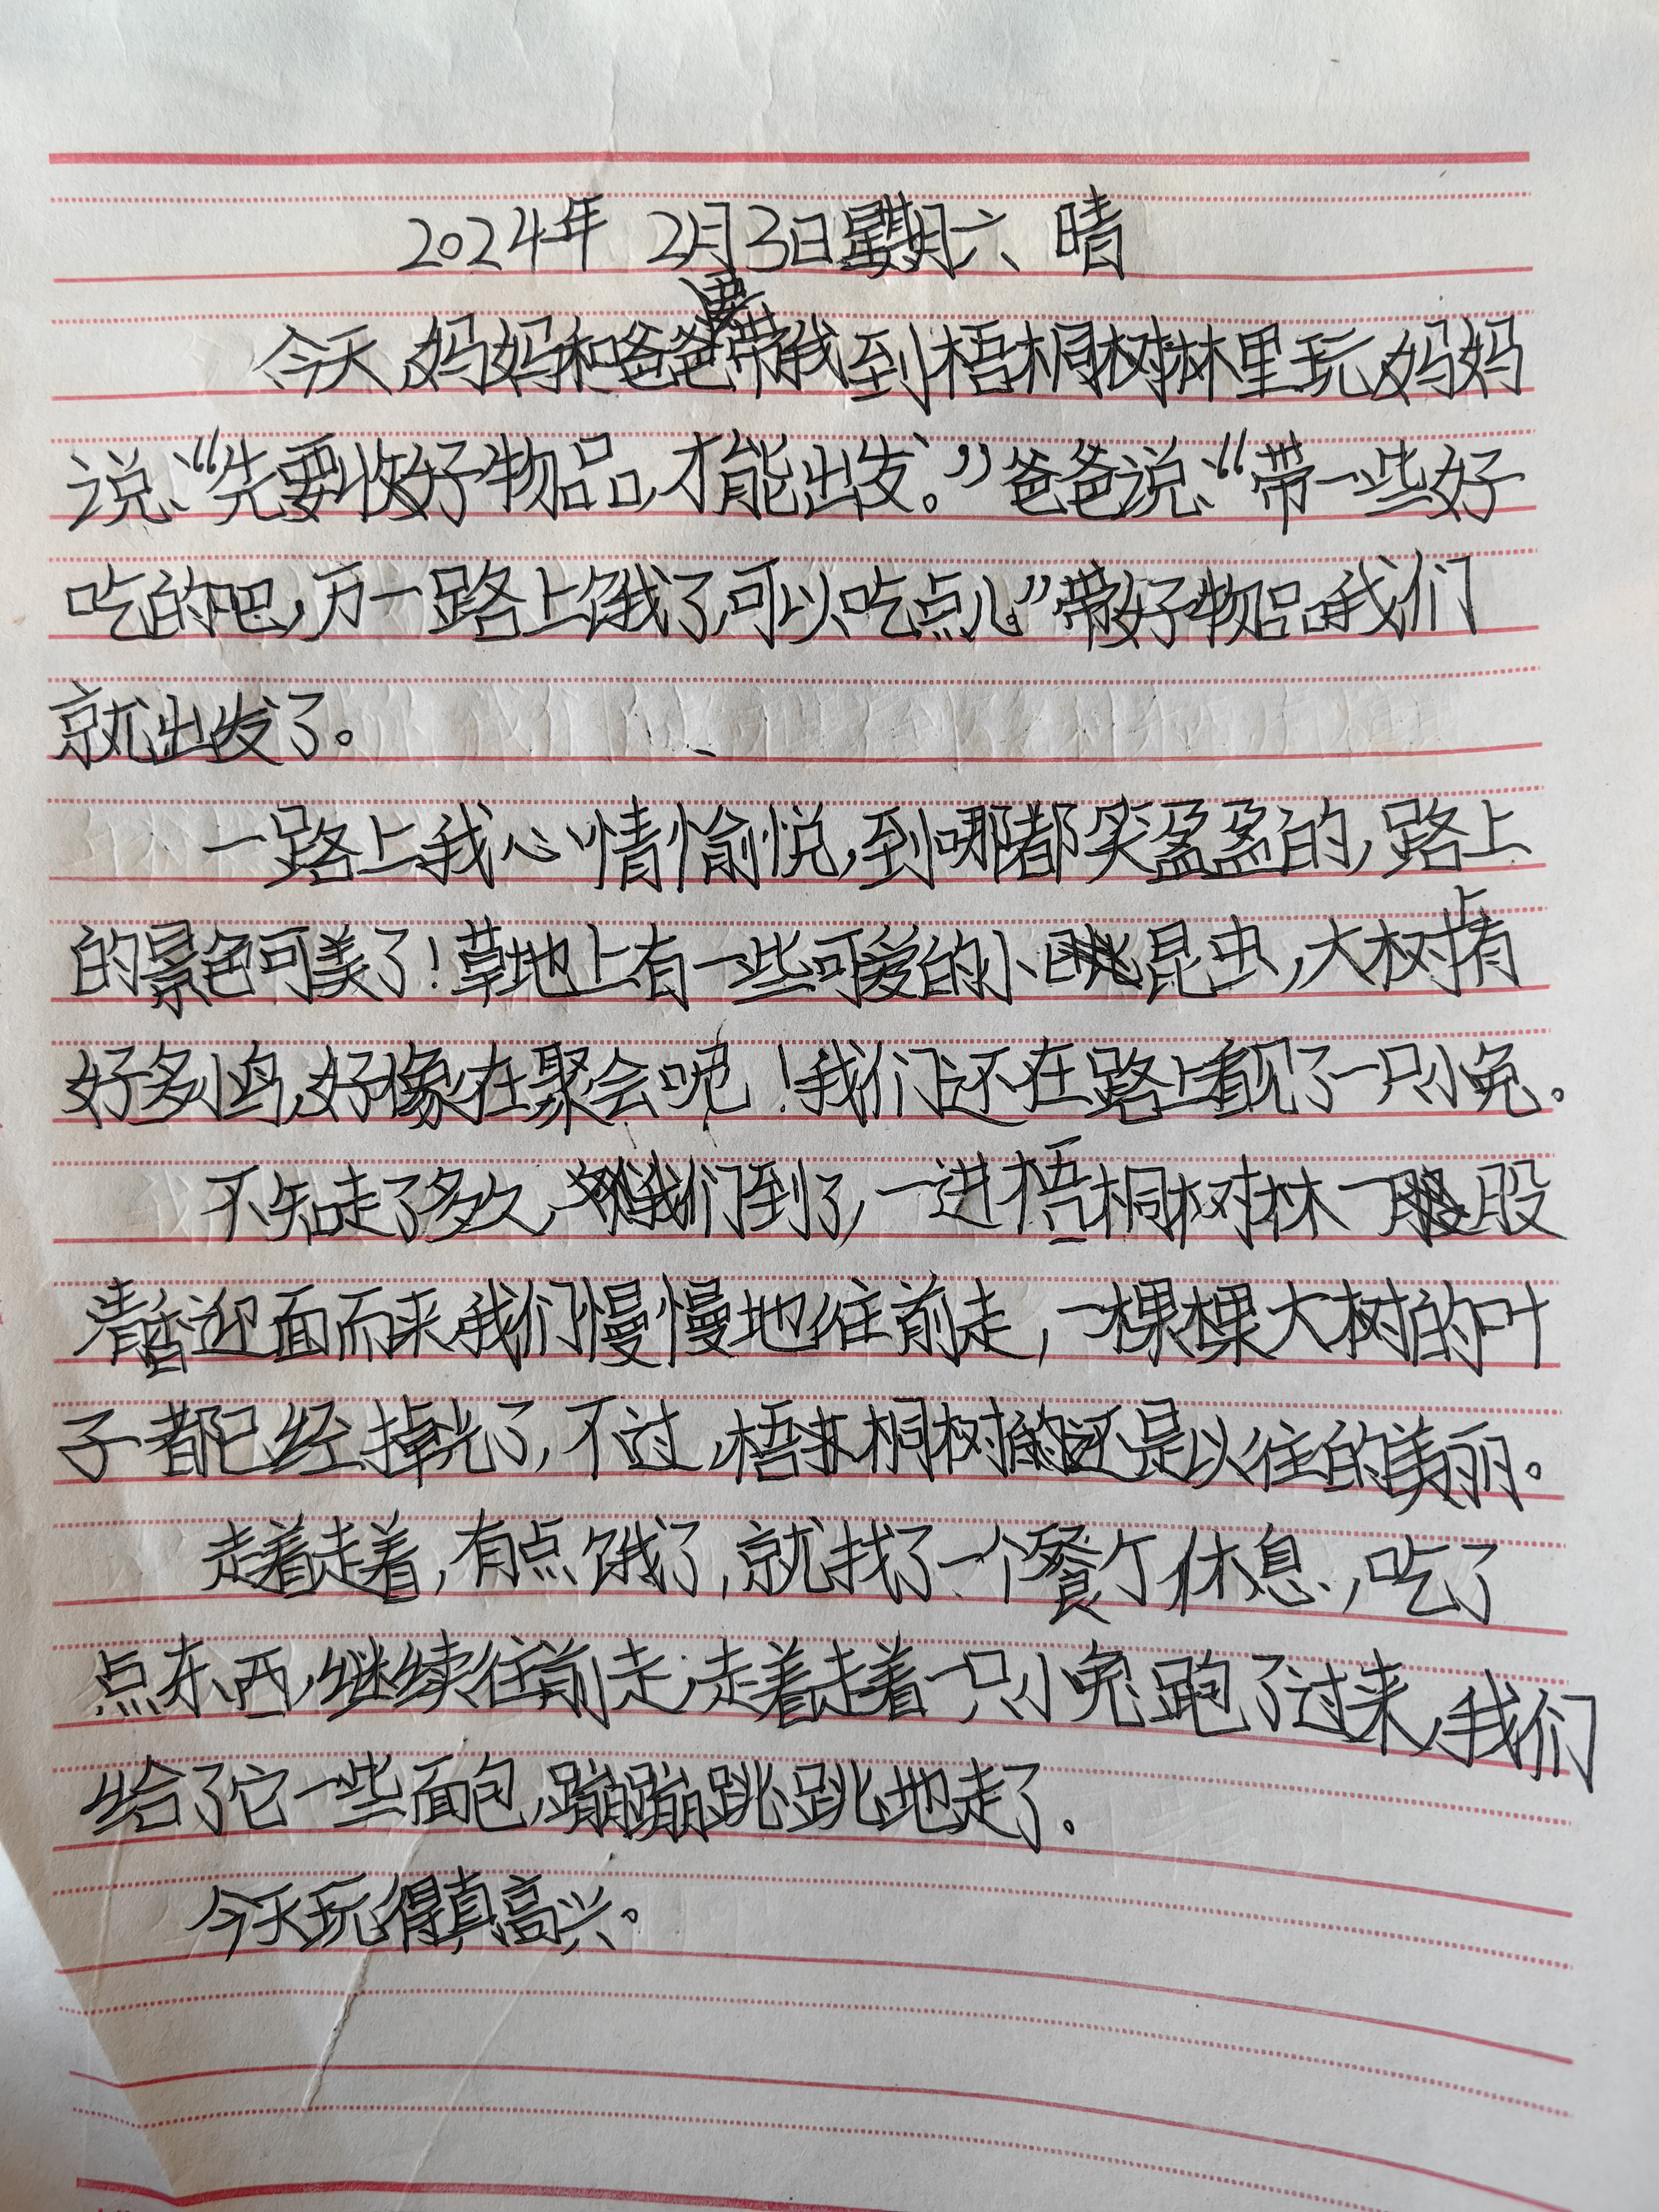 2024年 2月3日星期六、晴
今天,妈妈和爸爸要带我到梧桐树林里玩,妈妈
说、“先要收好物品,才能出发。”爸爸说、“带一些好
吃的吧,万一路上饿了,可以吃点儿。”带好物品我们
就出发了。
一路上我心情愉悦,到哪都笑盈盈的,路上
的景色可美了!草地上有一些可爱的小昆虫,大树上有
好多小鸟,好像在聚会呢!我们还在路上看见了一只小兔。
不知走了多久,我们到了,一进梧桐树林一股
清香迎面而来,我们慢慢地往前走,一棵棵大树的叶
子都已经掉光了,不过,梧桐树还是以往的美丽。
走着走着,有点饿了,就找了一个餐厅休息,吃了
点东西,继续往前走,走着走着一只小兔跑了过来,我们
给了它一些面包,蹦蹦跳跳地走了.
今天玩得真高兴。